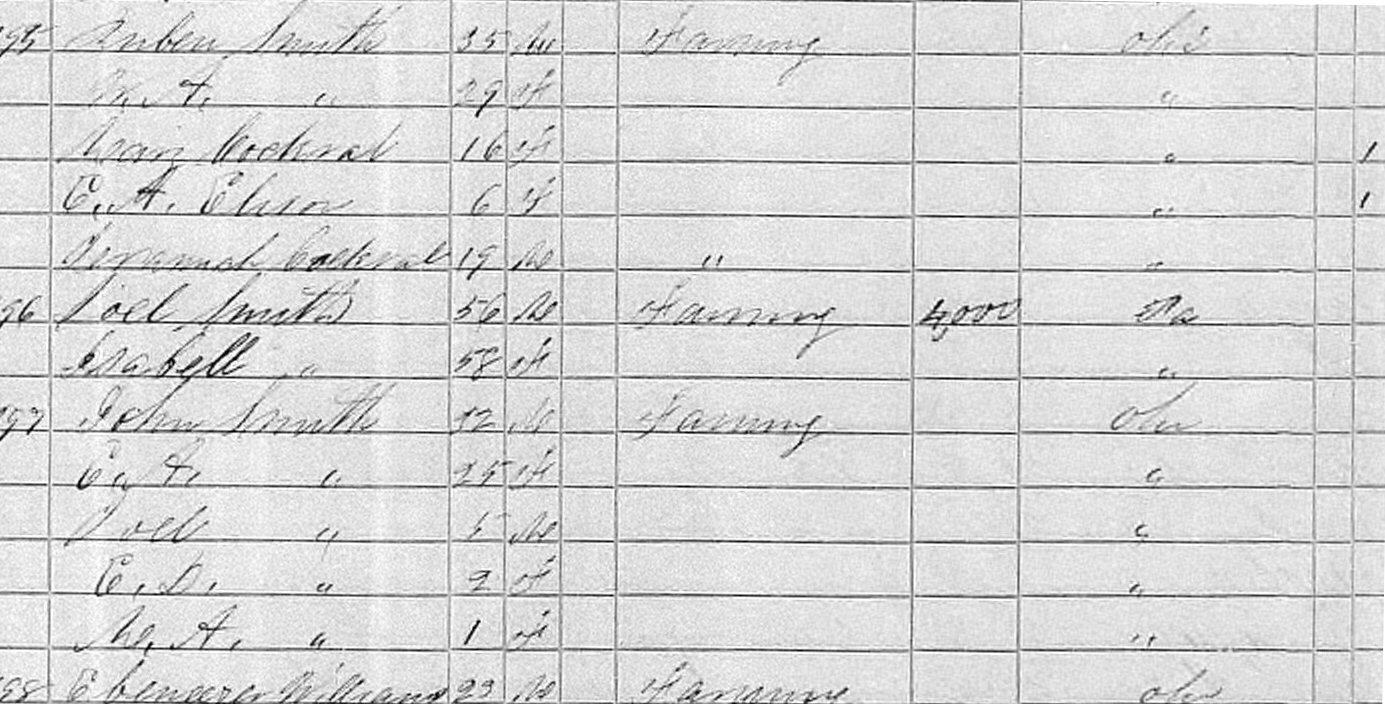 95 Ruben Smith 35 M Farming Ohio
A. " 29 f "
Cockral 16 f " 1
E. A. Elison 6 f " 1
Jeramiah Cockral 19 M " "
96 Joel Smith 56 M Farming 4,000 Pa
Isabell " 58 f "
97 John Smith 32 M Farming Ohio
E. A. " 25 f "
Joel " 5 M "
E. D. " 2 f "
M. A. " 1 f "
98 Ebenezer William 23 M Farming Ohio